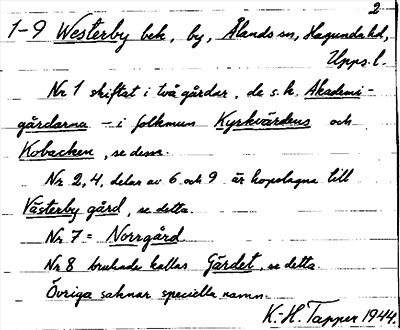 2
1-9 Westerby bek, by, Ålands sn, Hagunda hd,
Upps. l.
Nr 1 skiftat i två gårdar, de s.k. Akademi-
gårdarna - i folkmun Kyrkvärdens och
Kobacken, se dessa.
Nr 2, 4, delar av 6 och 9 är hopslagna till
Västerby gård, se detta.
Nr 7 = Norrgård
Nr 8 brukade kallas Gärdet, se detta.
Övriga saknar speciella namn.
K. H. Tapper 1944.